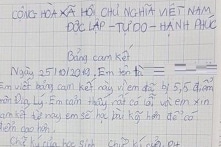 CỘNG HÒA XÃ HỘI CHỦ NGHĨA VIỆT NAM
ĐỘC LẬP - TỰ DO - HẠNH PHÚC
Bảng cam kết
Ngày 25/10/2013, Em tên là
Em viết bảng cam kết này vì em đã bị 5,5 điểm
môn Vậy Lý. Em cảm thấy rất có lỗi với em xin
cam kết từ nay em sẽ học bài kỹ hơn để có
điểm cao hơn.
Chữ ký của học sinh Chữ ký của PH